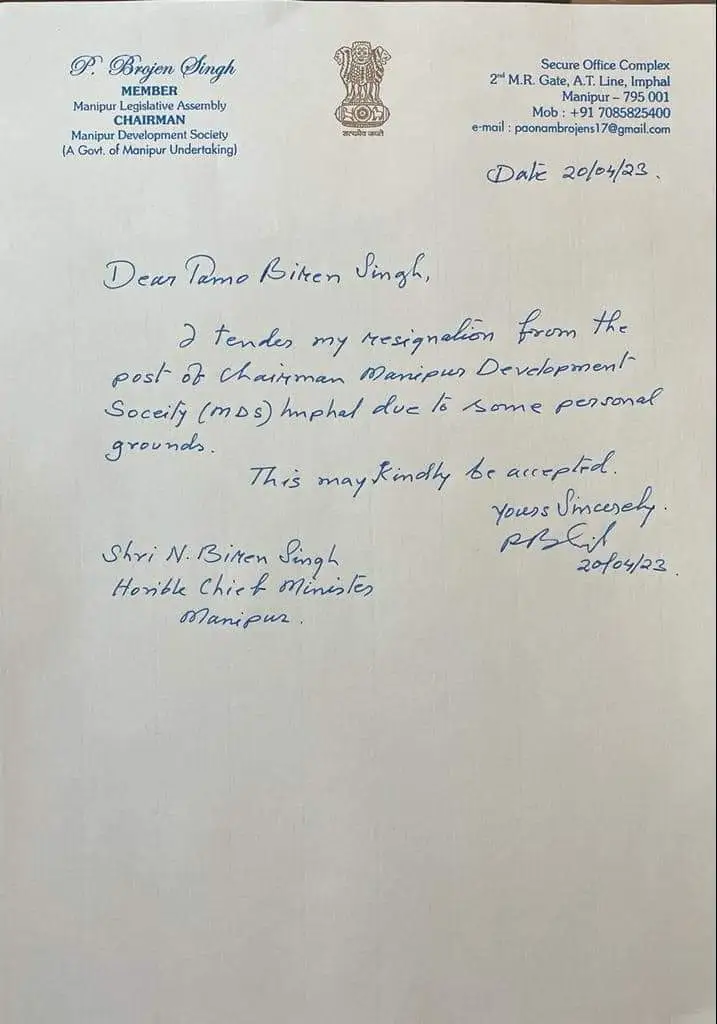 P. Brojen Singh
MEMBER
Manipur Legislative Assembly
CHAIRMAN
Manipur Development Society
(A Govt. of Manipur Undertaking)
सत्यमेव जयते
Secure Office Complex
2nd M.R. Gate, A.T. Line, Imphal
Manipur – 795 001
Mob : +91 7085825400
e-mail : paonambrojens17@gmail.com
Date 20/04/23.
Dear Tamo Biren Singh,
I tender my resignation from the
post of Chairman Manipur Development
Soceity (MDS) Imphal due to some personal
grounds.
This may kindly be accepted.
Yours Sincerely.
20/04/23.
Shri N. Biren Singh
Hon'ble Chief Minister
Manipur.